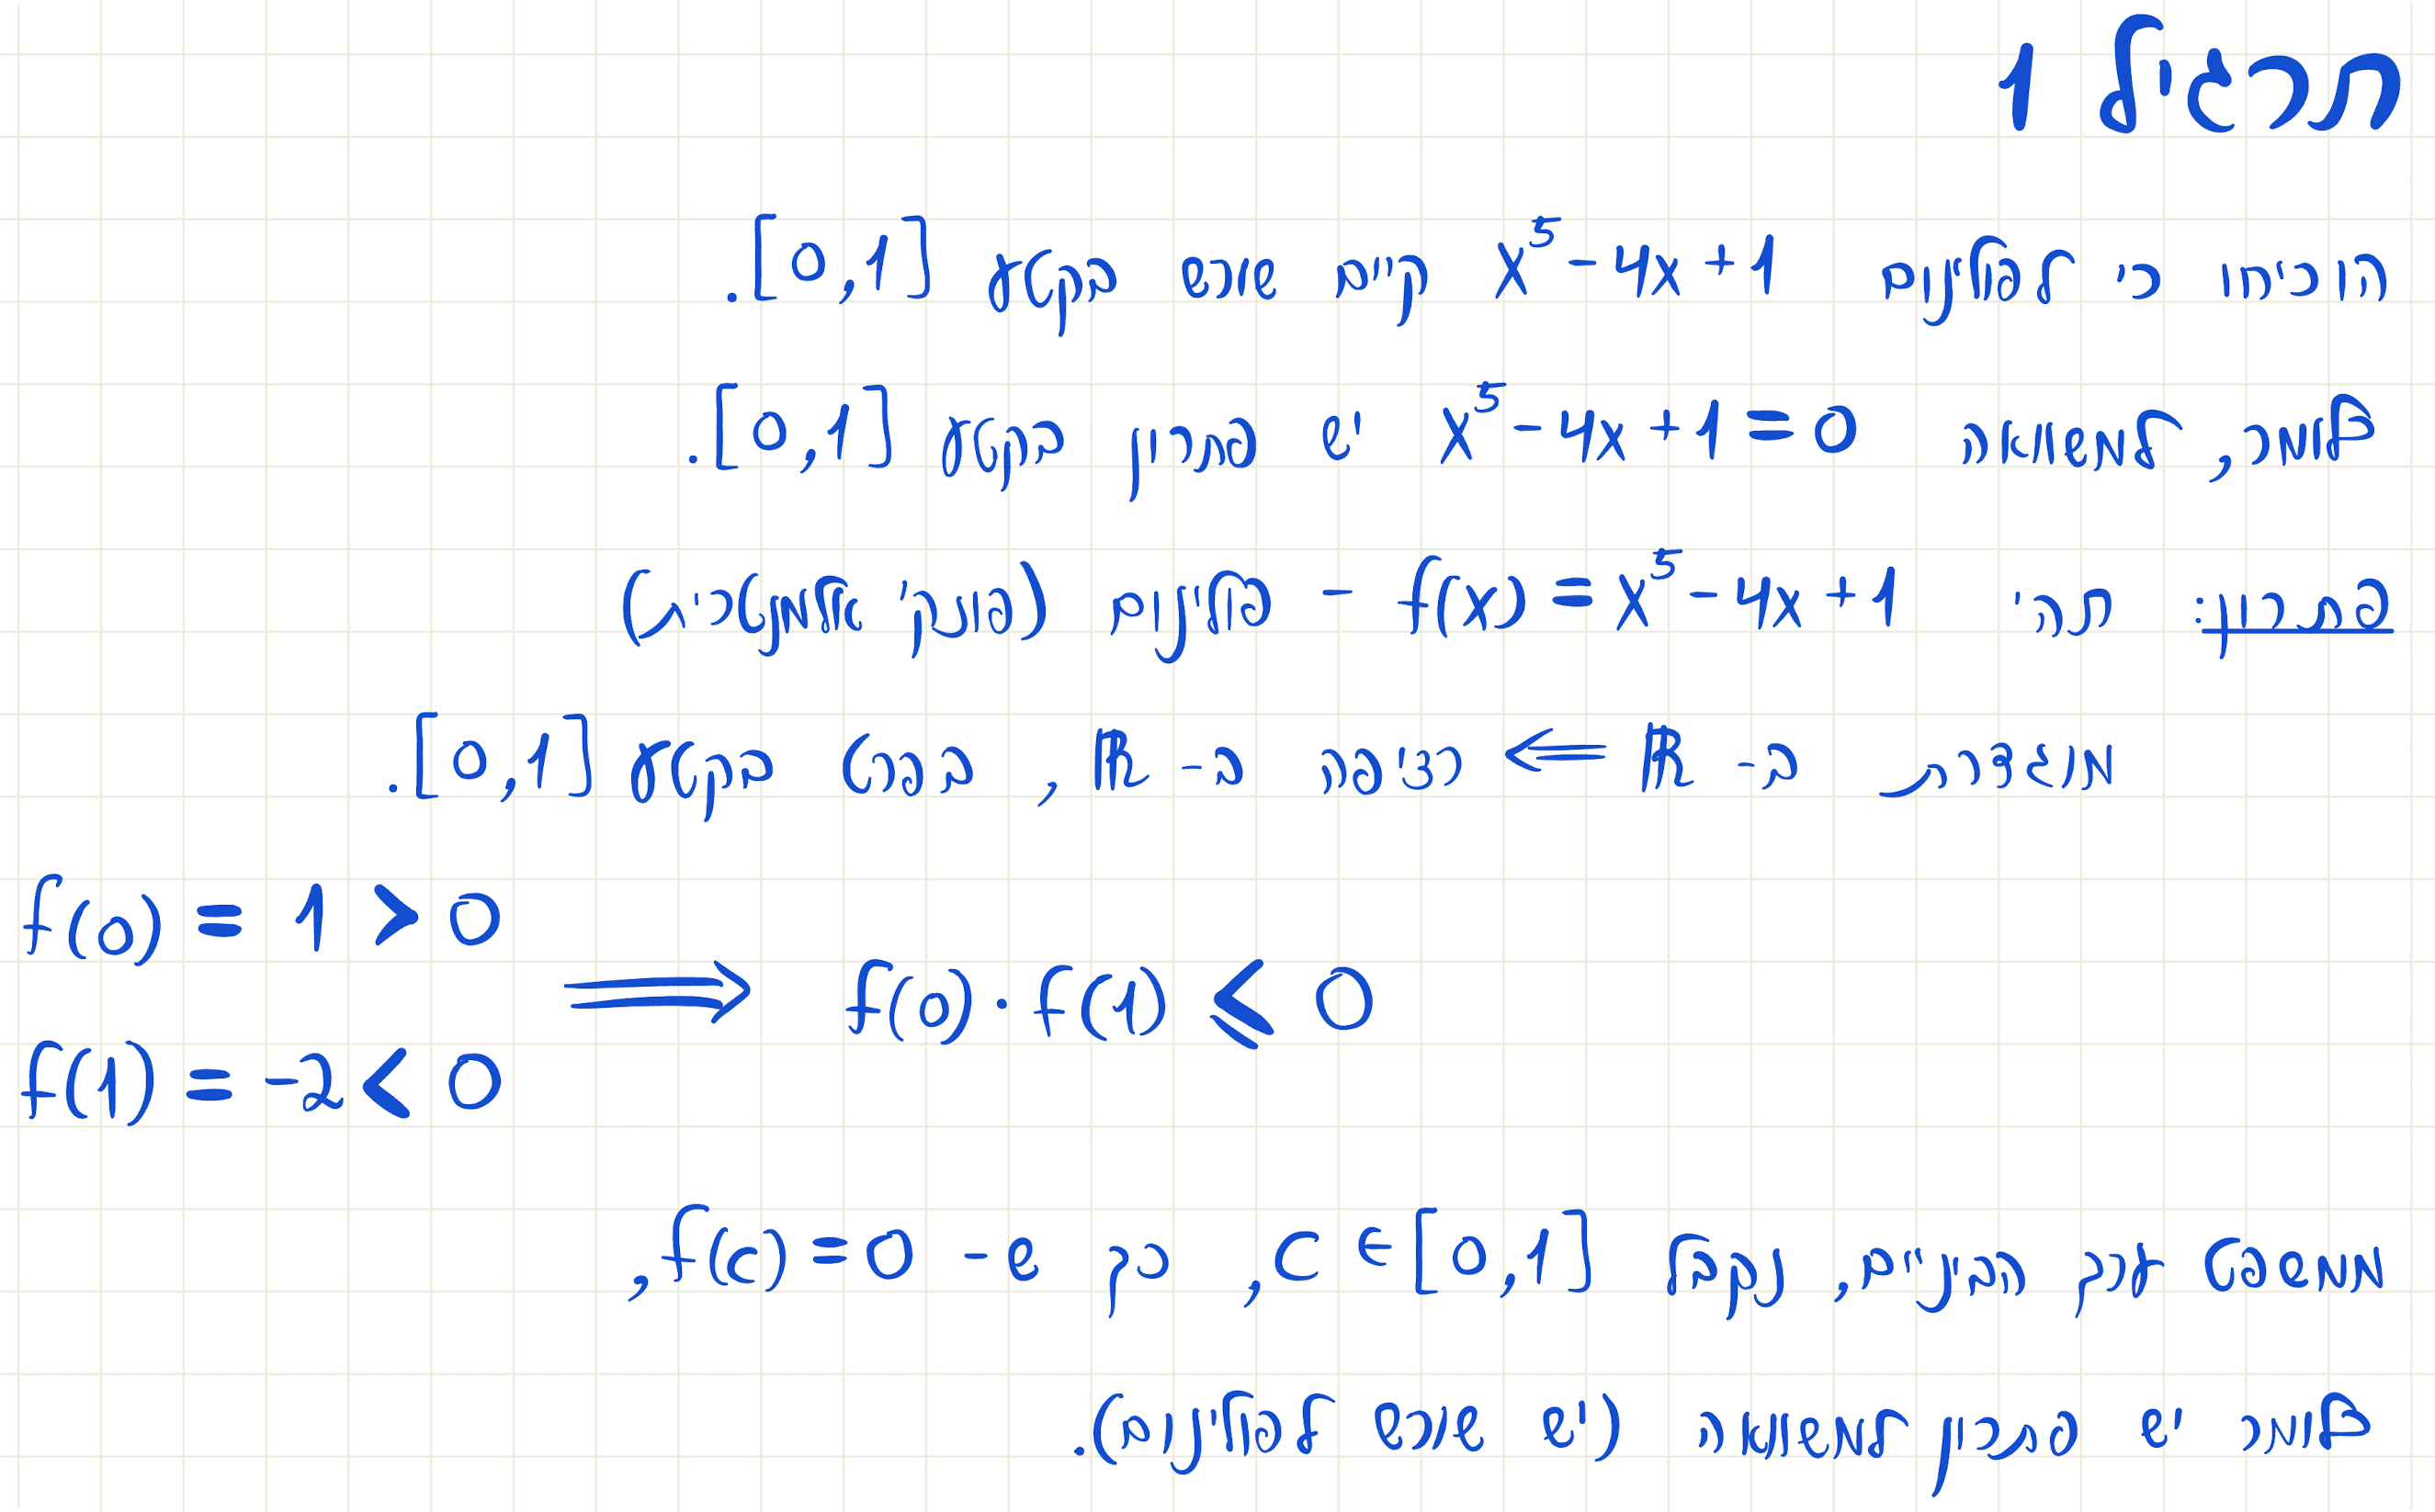 תרגיל 1
הוכיחו כי לפולינום x⁵-4x+1 קיים שורש בקטע [0,1].
כלומר, למשוואה x⁵-4x+1=0 יש פתרון בקטע [0,1].
פתרון: תהי f(x)=x⁵-4x+1 - פולינום (פונק' אלמנטרית)
מוגדרת ב-ℝ ⇐ רציפה ב-ℝ, בפרט בקטע [0,1].
f(0) = 1 > 0
⟹ f(0)·f(1) < 0
f(1) = -2 < 0
ממשפט ערך הביניים, נקבל c∈[0,1], כך ש-f(c)=0,
כלומר יש פתרון למשוואה (יש שורש לפולינום).